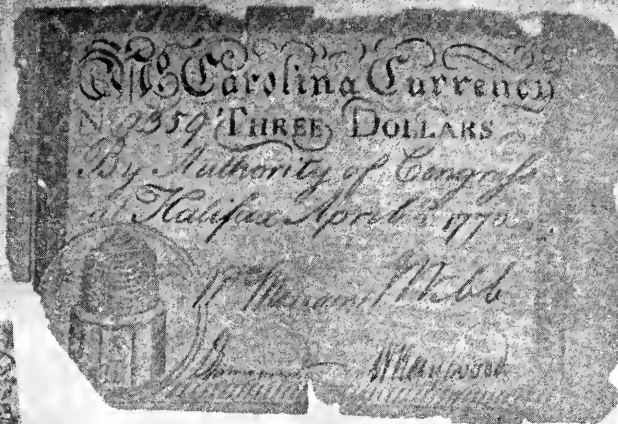 No Carolina Currency
No 9359 THREE DOLLARS
By Authority of Congress
at Halifax April 2, 1776
Webb
W Haywood